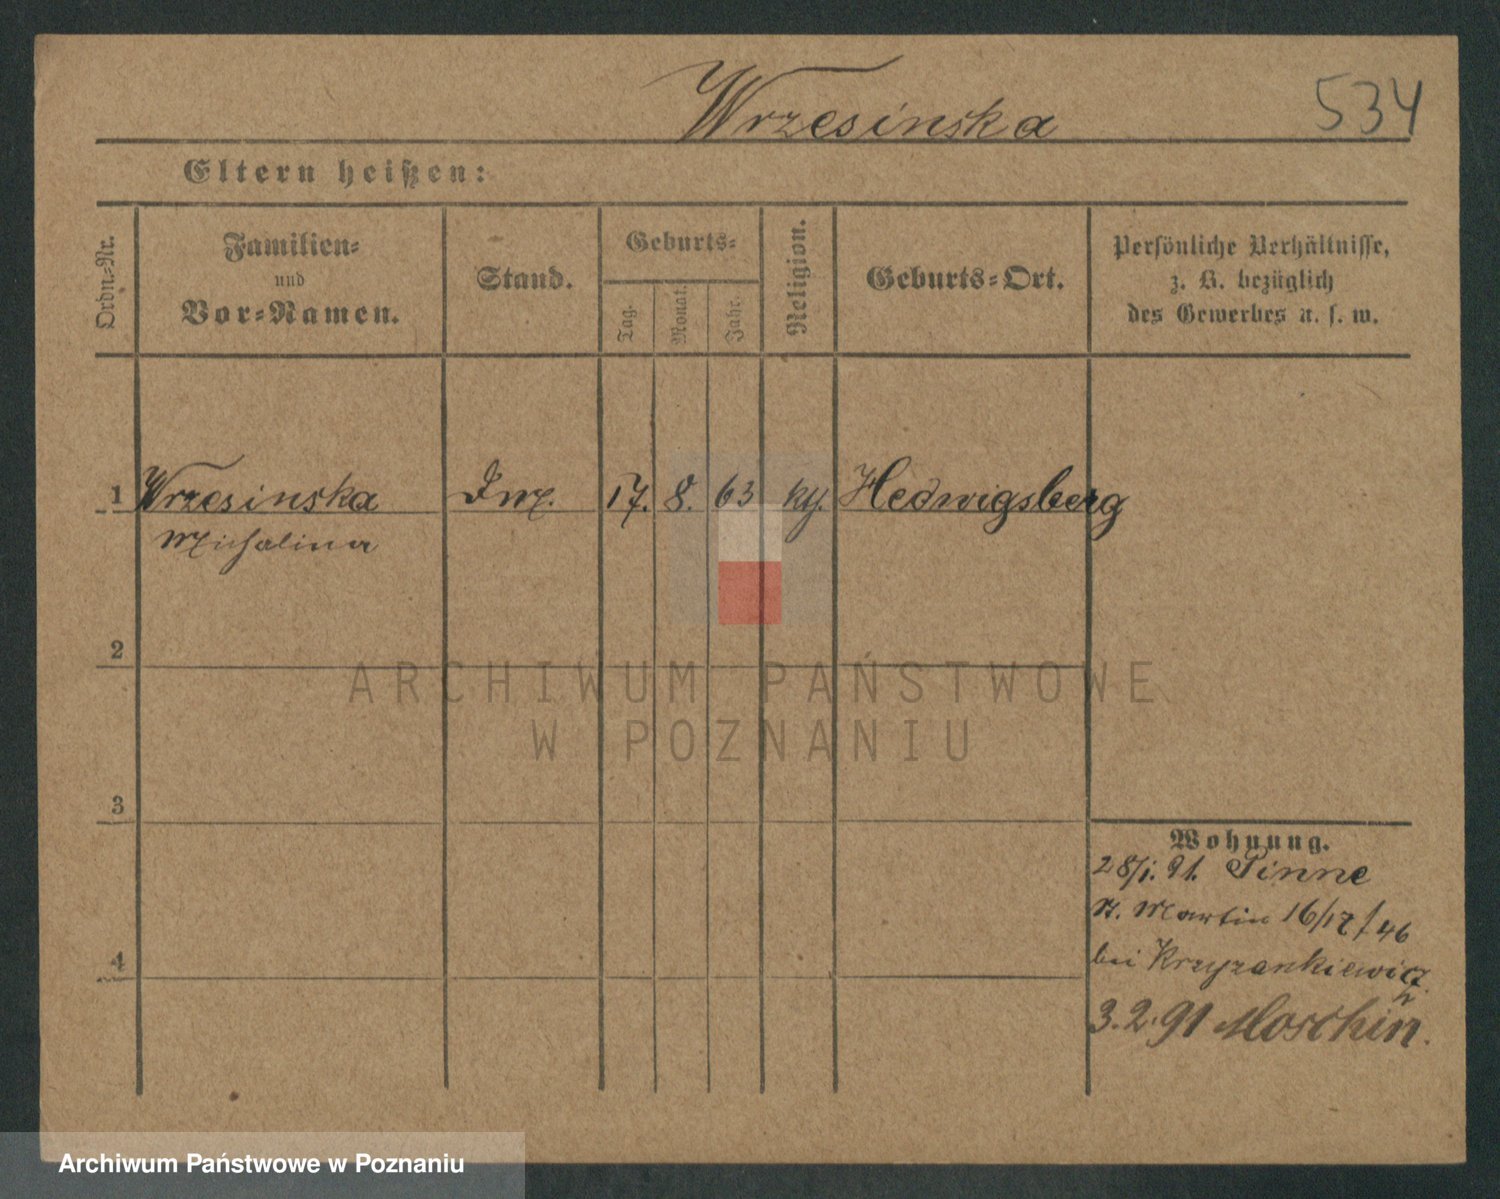 Wrzesinska
534
Eltern heißen:
Ordn.-Nr.
Familien-
und
Vor-Namen.
Stand.
Geburts-
Tag.
Monat.
Jahr.
Religion.
Geburts-Ort.
Persönliche Verhältnisse,
z. B. bezüglich
des Gewerbes u. s. w.
1 Wrzesinska 17. 8. 63 Hedwigsberg
Michalina
2
3
4
Wohnung.
28/1. 91. Pinne
St. Martin 16/17 / 46
bei Krzyzankiewicz
3.2.91 Moschin.
ARCHIWUM PAŃSTWOWE
W POZNANIU
Archiwum Państwowe w Poznaniu